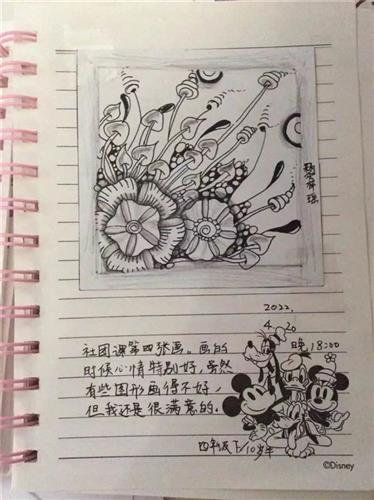 2022,
4.20
晚18:00
社团课第四张画。画的
时候心情特别好,虽然
有些图形画得不好,
但我还是很满意的.
四年级下/10岁半
©Disney